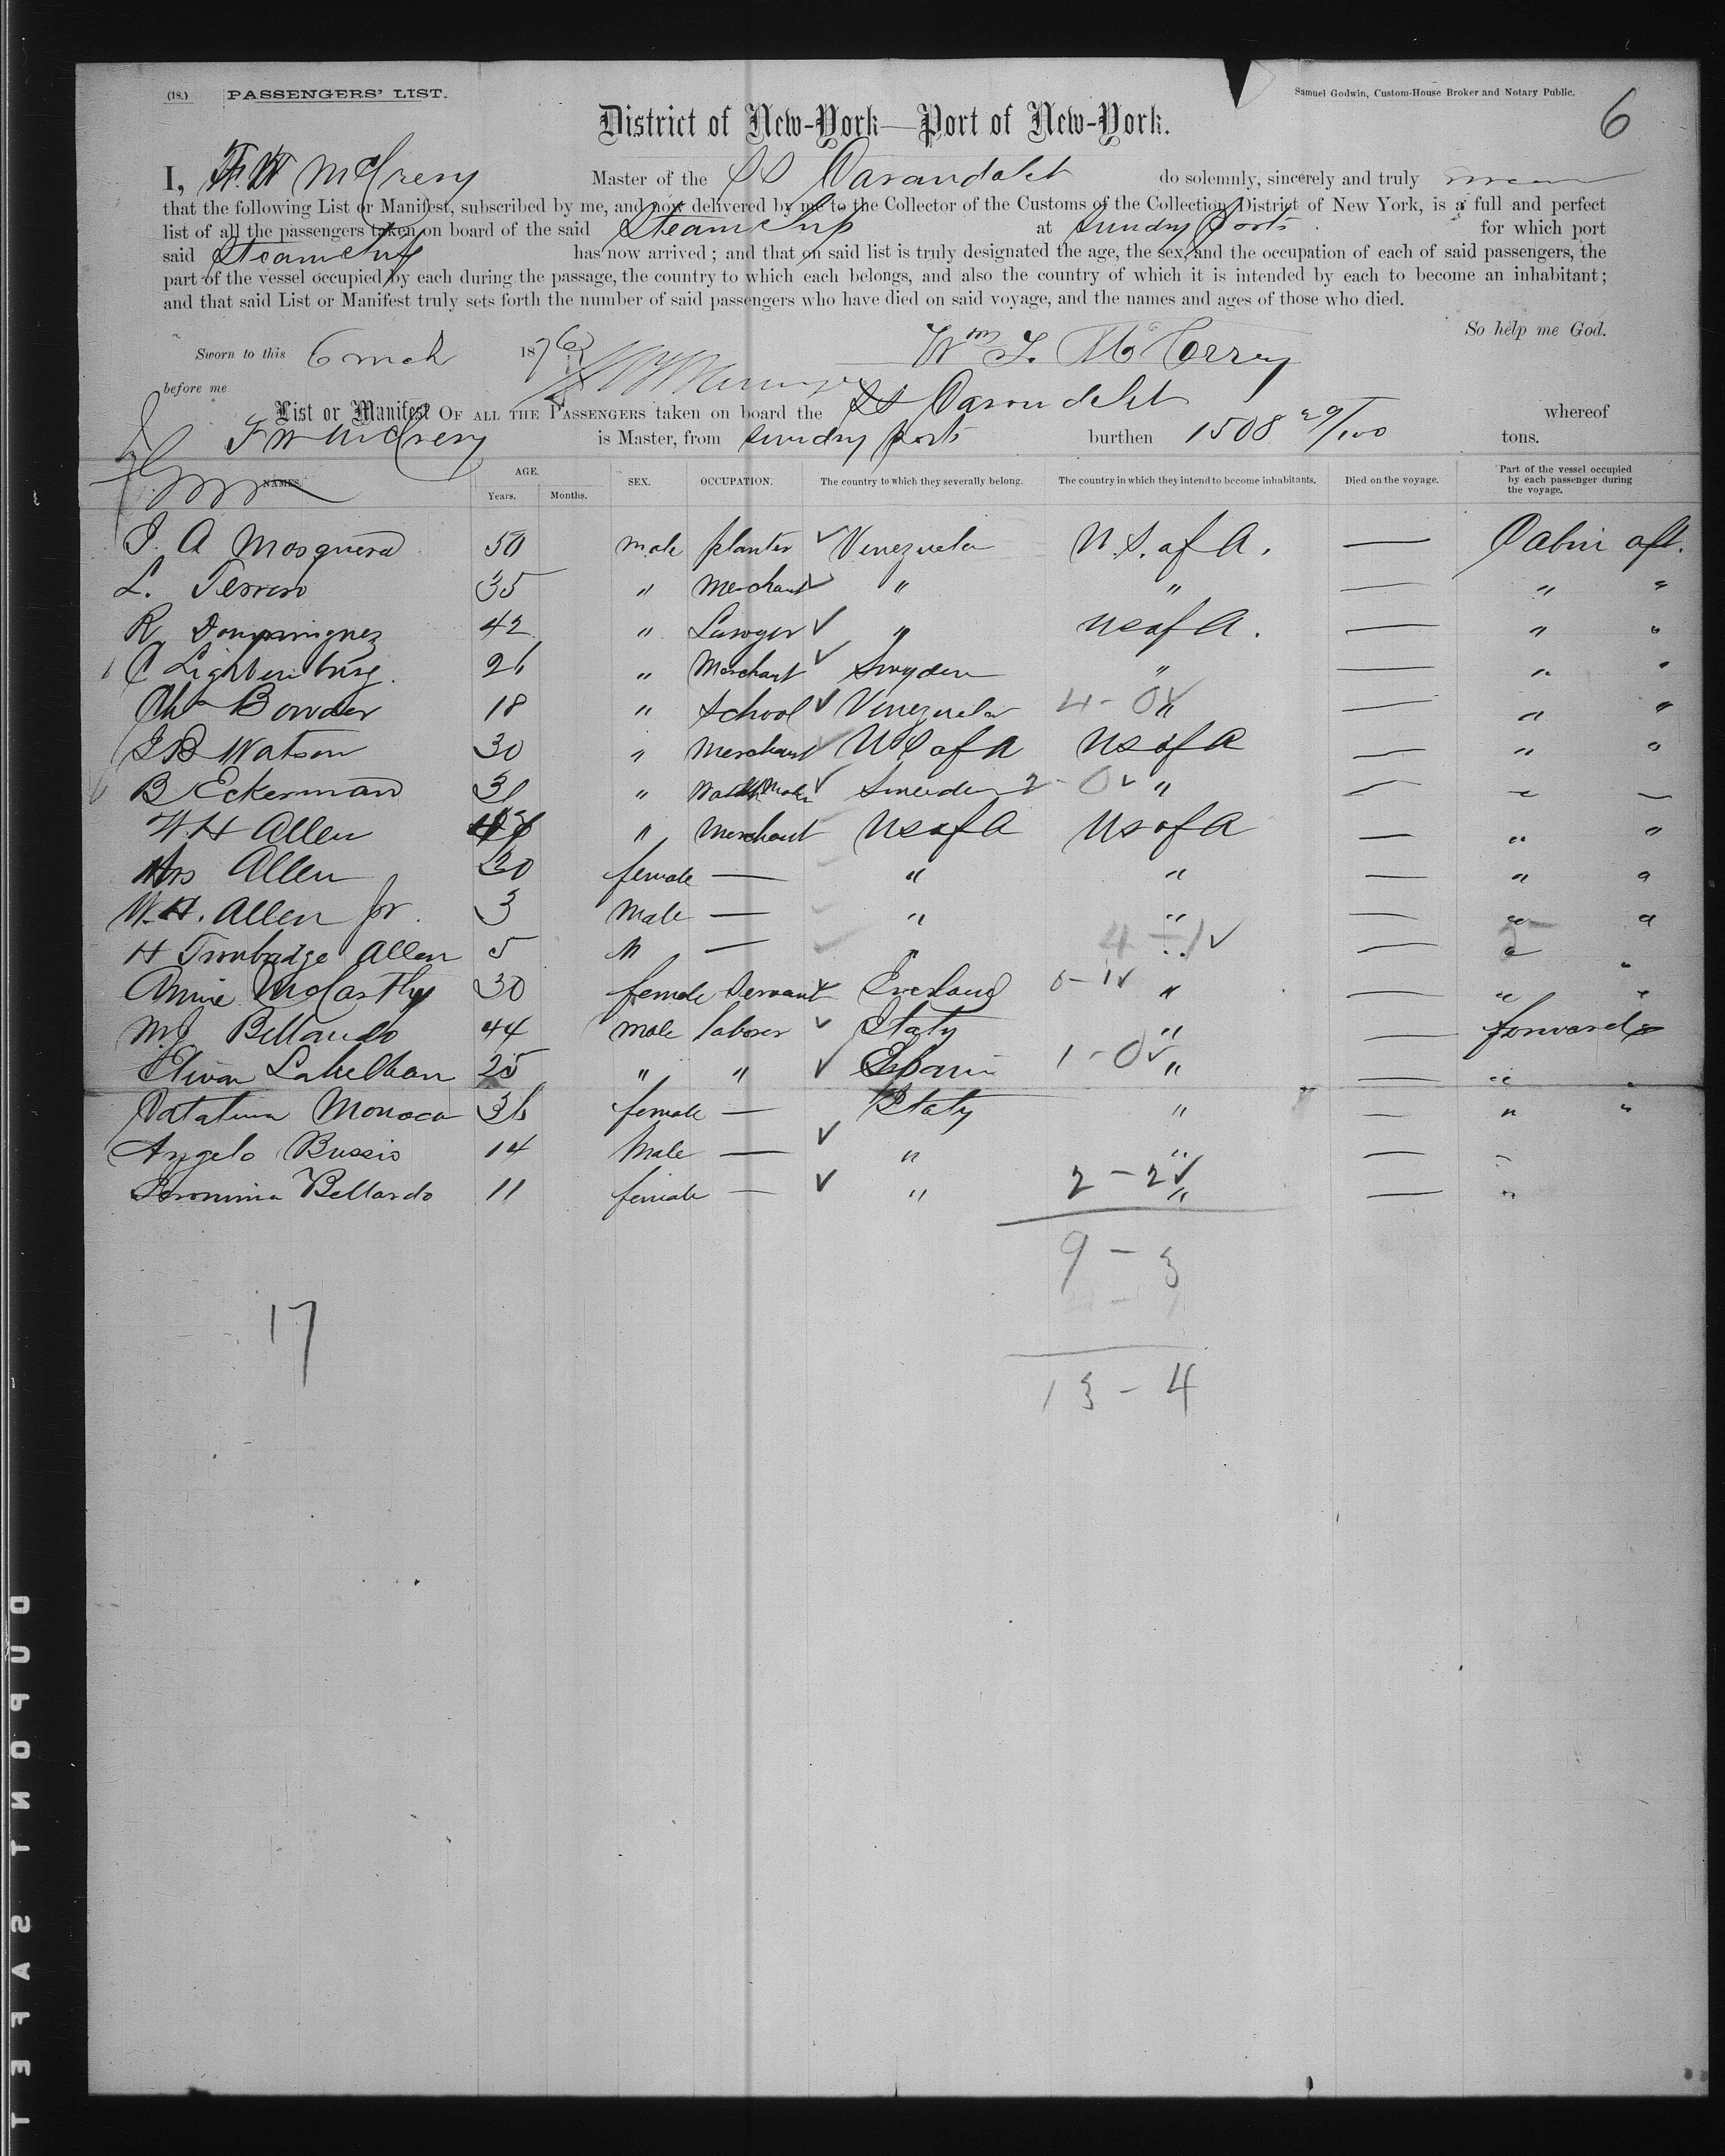 (18.) PASSENGERS' LIST. Samuel Godwin, Custom-House Broker and Notary Public. 6
District of New-York—Port of New-York.
I, Master of the SS Carondelet do solemnly, sincerely and truly swear
that the following List or Manifest, subscribed by me, and now delivered by me to the Collector of the Customs of the Collection District of New York, is a full and perfect
list of all the passengers taken on board of the said Steamship at Sundry Ports for which port
said Steamship has now arrived; and that on said list is truly designated the age, the sex, and the occupation of each of said passengers, the
part of the vessel occupied by each during the passage, the country to which each belongs, and also the country of which it is intended by each to become an inhabitant;
and that said List or Manifest truly sets forth the number of said passengers who have died on said voyage, and the names and ages of those who died.
So help me God.
Sworn to this 6 mch 1876
before me
List or Manifest OF ALL THE PASSENGERS taken on board the SS Carondelet whereof
is Master, from sundry ports burthen 1508 29/100 tons.
NAMES. AGE. Years. Months. SEX. OCCUPATION. The country to which they severally belong. The country in which they intend to become inhabitants. Died on the voyage. Part of the vessel occupied by each passenger during the voyage.
J. A Mosquera 50 male planter ✓ Venezuela U.S. of A. — Cabin aft.
L. Terrero 35 " Merchant ✓ " " — " "
R Dominguez 42 " Lawyer ✓ " US of A. — " "
C 26 " Merchant ✓ Sweyden " — " "
Chs Bowder 18 " School ✓ Venezuela 4-0 ✓ " — " "
J B Watson 30 " Merchant ✓ US of A US of A — " "
B Eckerman 31 " ✓ Sweeden 2-0 ✓ " — " —
W. H Allen " Merchant US of A US of A — " "
Mrs Allen 20 female — " " — " "
W. H. Allen Jr. 3 Male — " " — " "
H Trowbridge Allen 5 " — " 4-1 ✓ " — " "
Annie McCarthy 30 female Servant ✓ England 0-1 ✓ " — " "
M.J Bellardo 44 male laborer ✓ Italy " — forward
25 " " ✓ Spain 1-0 ✓ " — " "
Monaco 36 female — Italy " — " "
Angelo Bussio 14 Male — ✓ " " — "
Geronima Bellardo 11 female — ✓ " 2-2 ✓ " — "
9-3
17
13-4